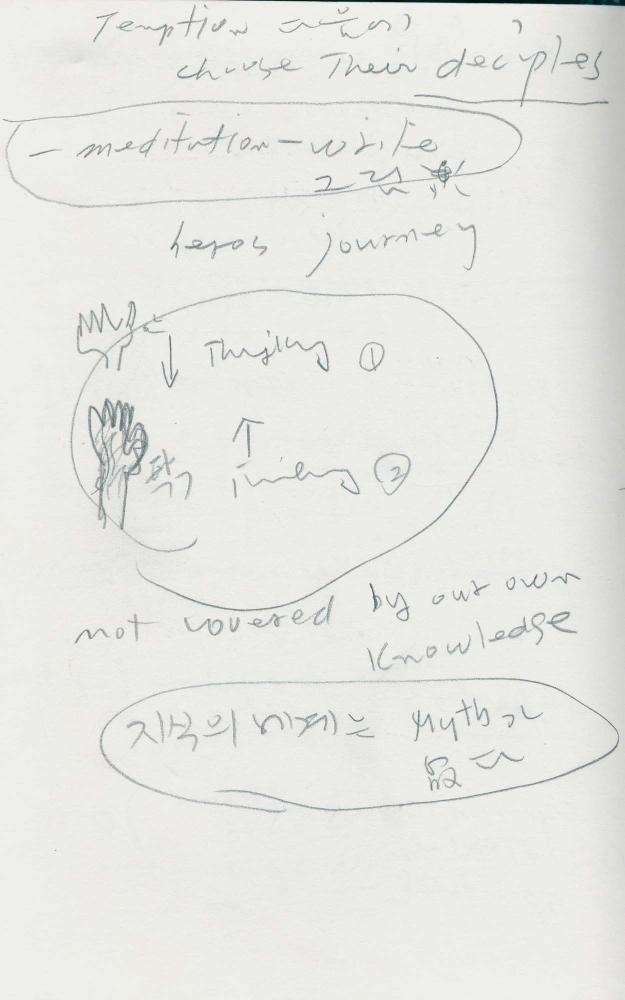 Temption 다음에
choose Their deciples
- meditation - write
그림
heros journey
Thinking ①
Thinking ②
not covered by our own
Knowledge
지식의 세계는 Myth가
없다